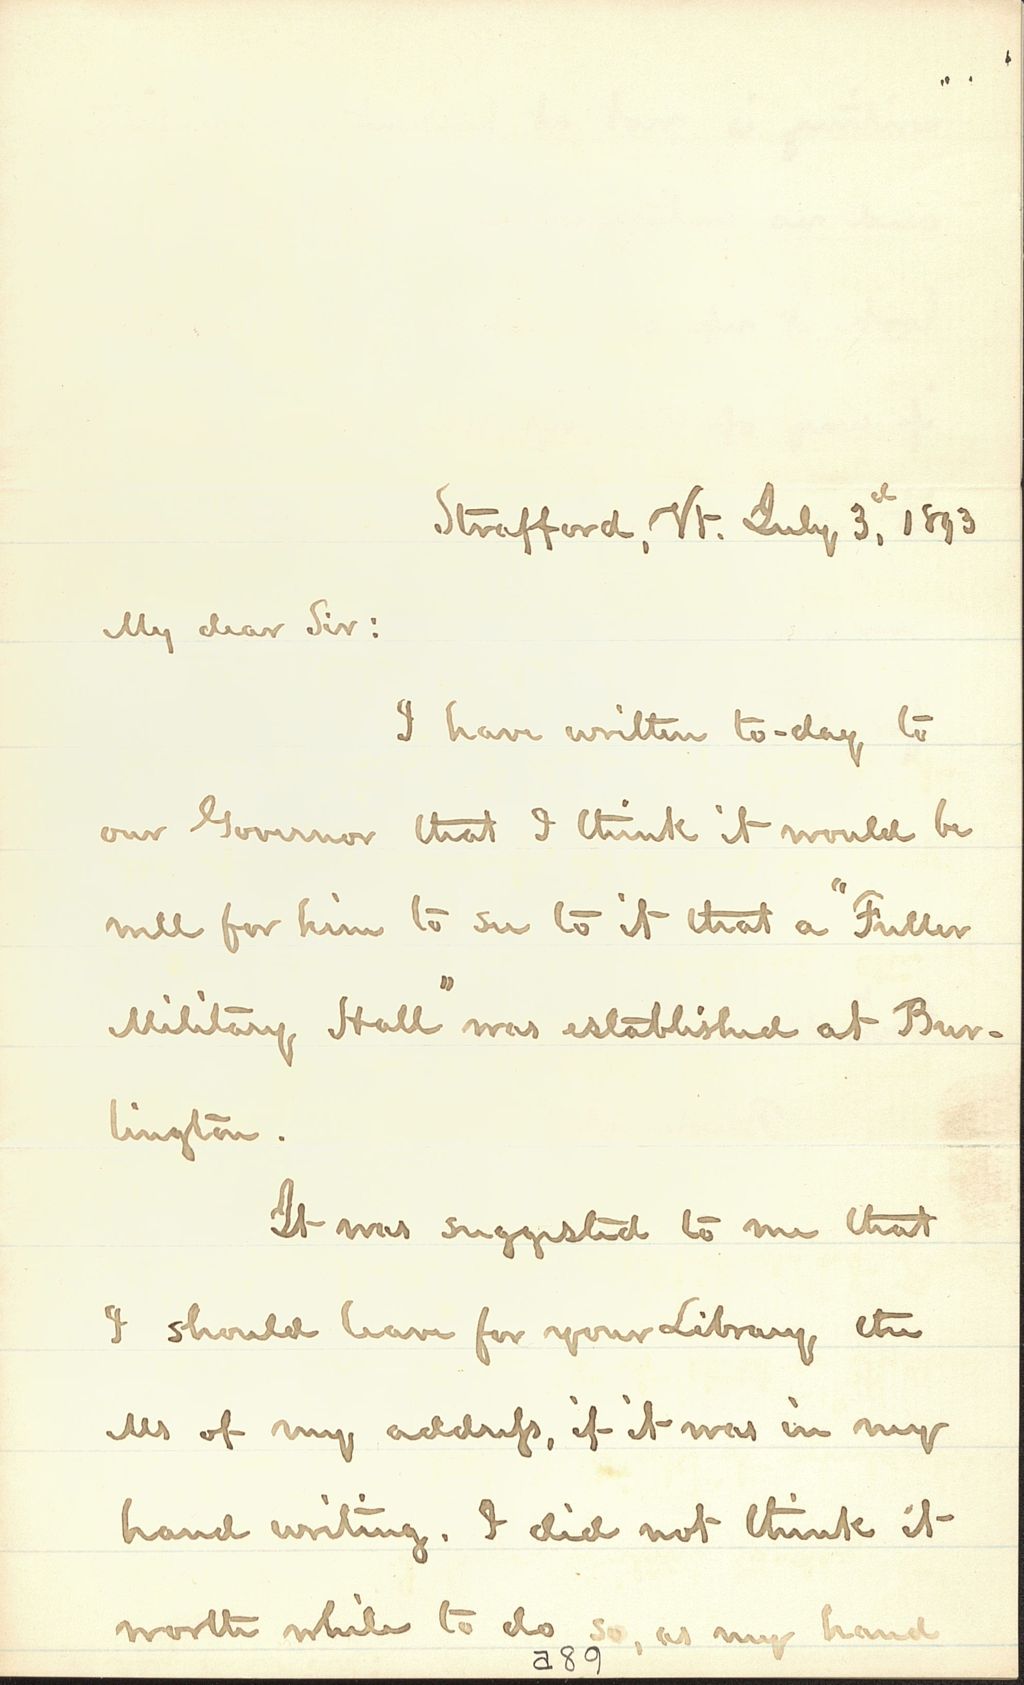 Strafford, Vt. July 3d, 1893
My dear Sir:
I have written to-day to
our Governor that I think it would be
well for him to see to it that a "Fuller
Military Hall" was established at Bur-
lington.
It was suggested to me that
I should leave for your Library the
Ms of my address, if it was in my
hand writing. I did not think it
worth while to do so, as my hand
a89